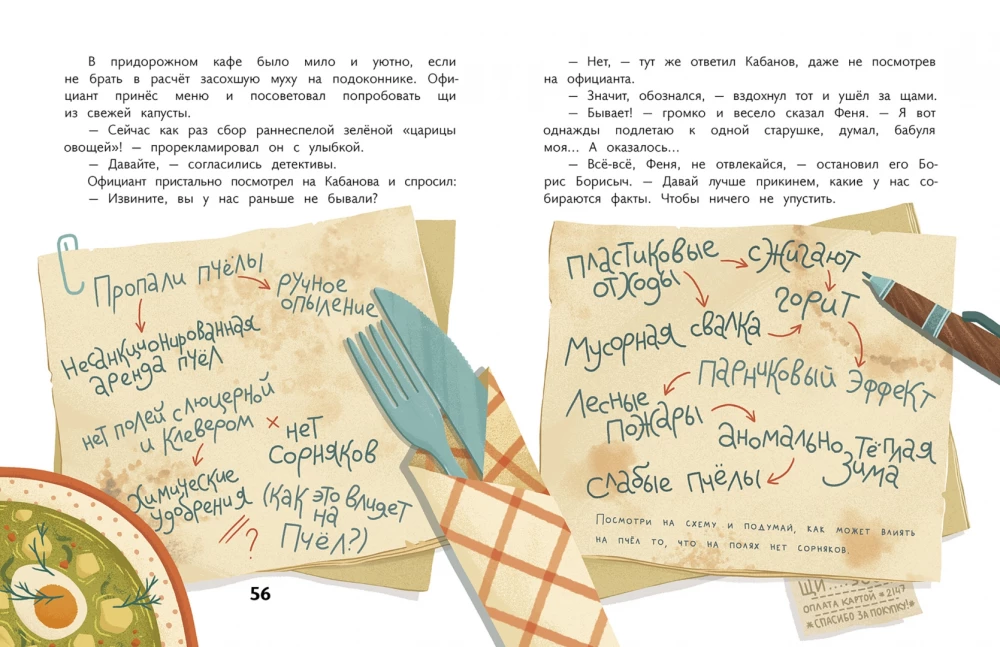 В придорожном кафе было мило и уютно, если
не брать в расчёт засохшую муху на подоконнике. Офи-
циант принёс меню и посоветовал попробовать щи
из свежей капусты.
— Сейчас как раз сбор раннеспелой зелёной «царицы
овощей»! — прорекламировал он с улыбкой.
— Давайте, — согласились детективы.
Официант пристально посмотрел на Кабанова и спросил:
— Извините, вы у нас раньше не бывали?
Пропали пчёлы
ручное
опыление
Несанкционированная
аренда пчёл
нет полей с люцерной
и клевером
× нет
сорняков
Химические
удобрения
(как это влияет
на
пчёл?)
//?
56
— Нет, — тут же ответил Кабанов, даже не посмотрев
на официанта.
— Значит, обознался, — вздохнул тот и ушёл за щами.
— Бывает! — громко и весело сказал Феня. — Я вот
однажды подлетаю к одной старушке, думал, бабуля
моя... А оказалось...
— Всё-всё, Феня, не отвлекайся, — остановил его Бо-
рис Борисыч. — Давай лучше прикинем, какие у нас со-
бираются факты. Чтобы ничего не упустить.
Пластиковые
отходы
сжигают
горит
Мусорная свалка
Парниковый эффект
Лесные
пожары
аномально тёплая
зима
слабые пчёлы
Посмотри на схему и подумай, как может влиять
на пчёл то, что на полях нет сорняков.
ЩИ....
ОПЛАТА КАРТОЙ *2147
*СПАСИБО ЗА ПОКУПКУ!*